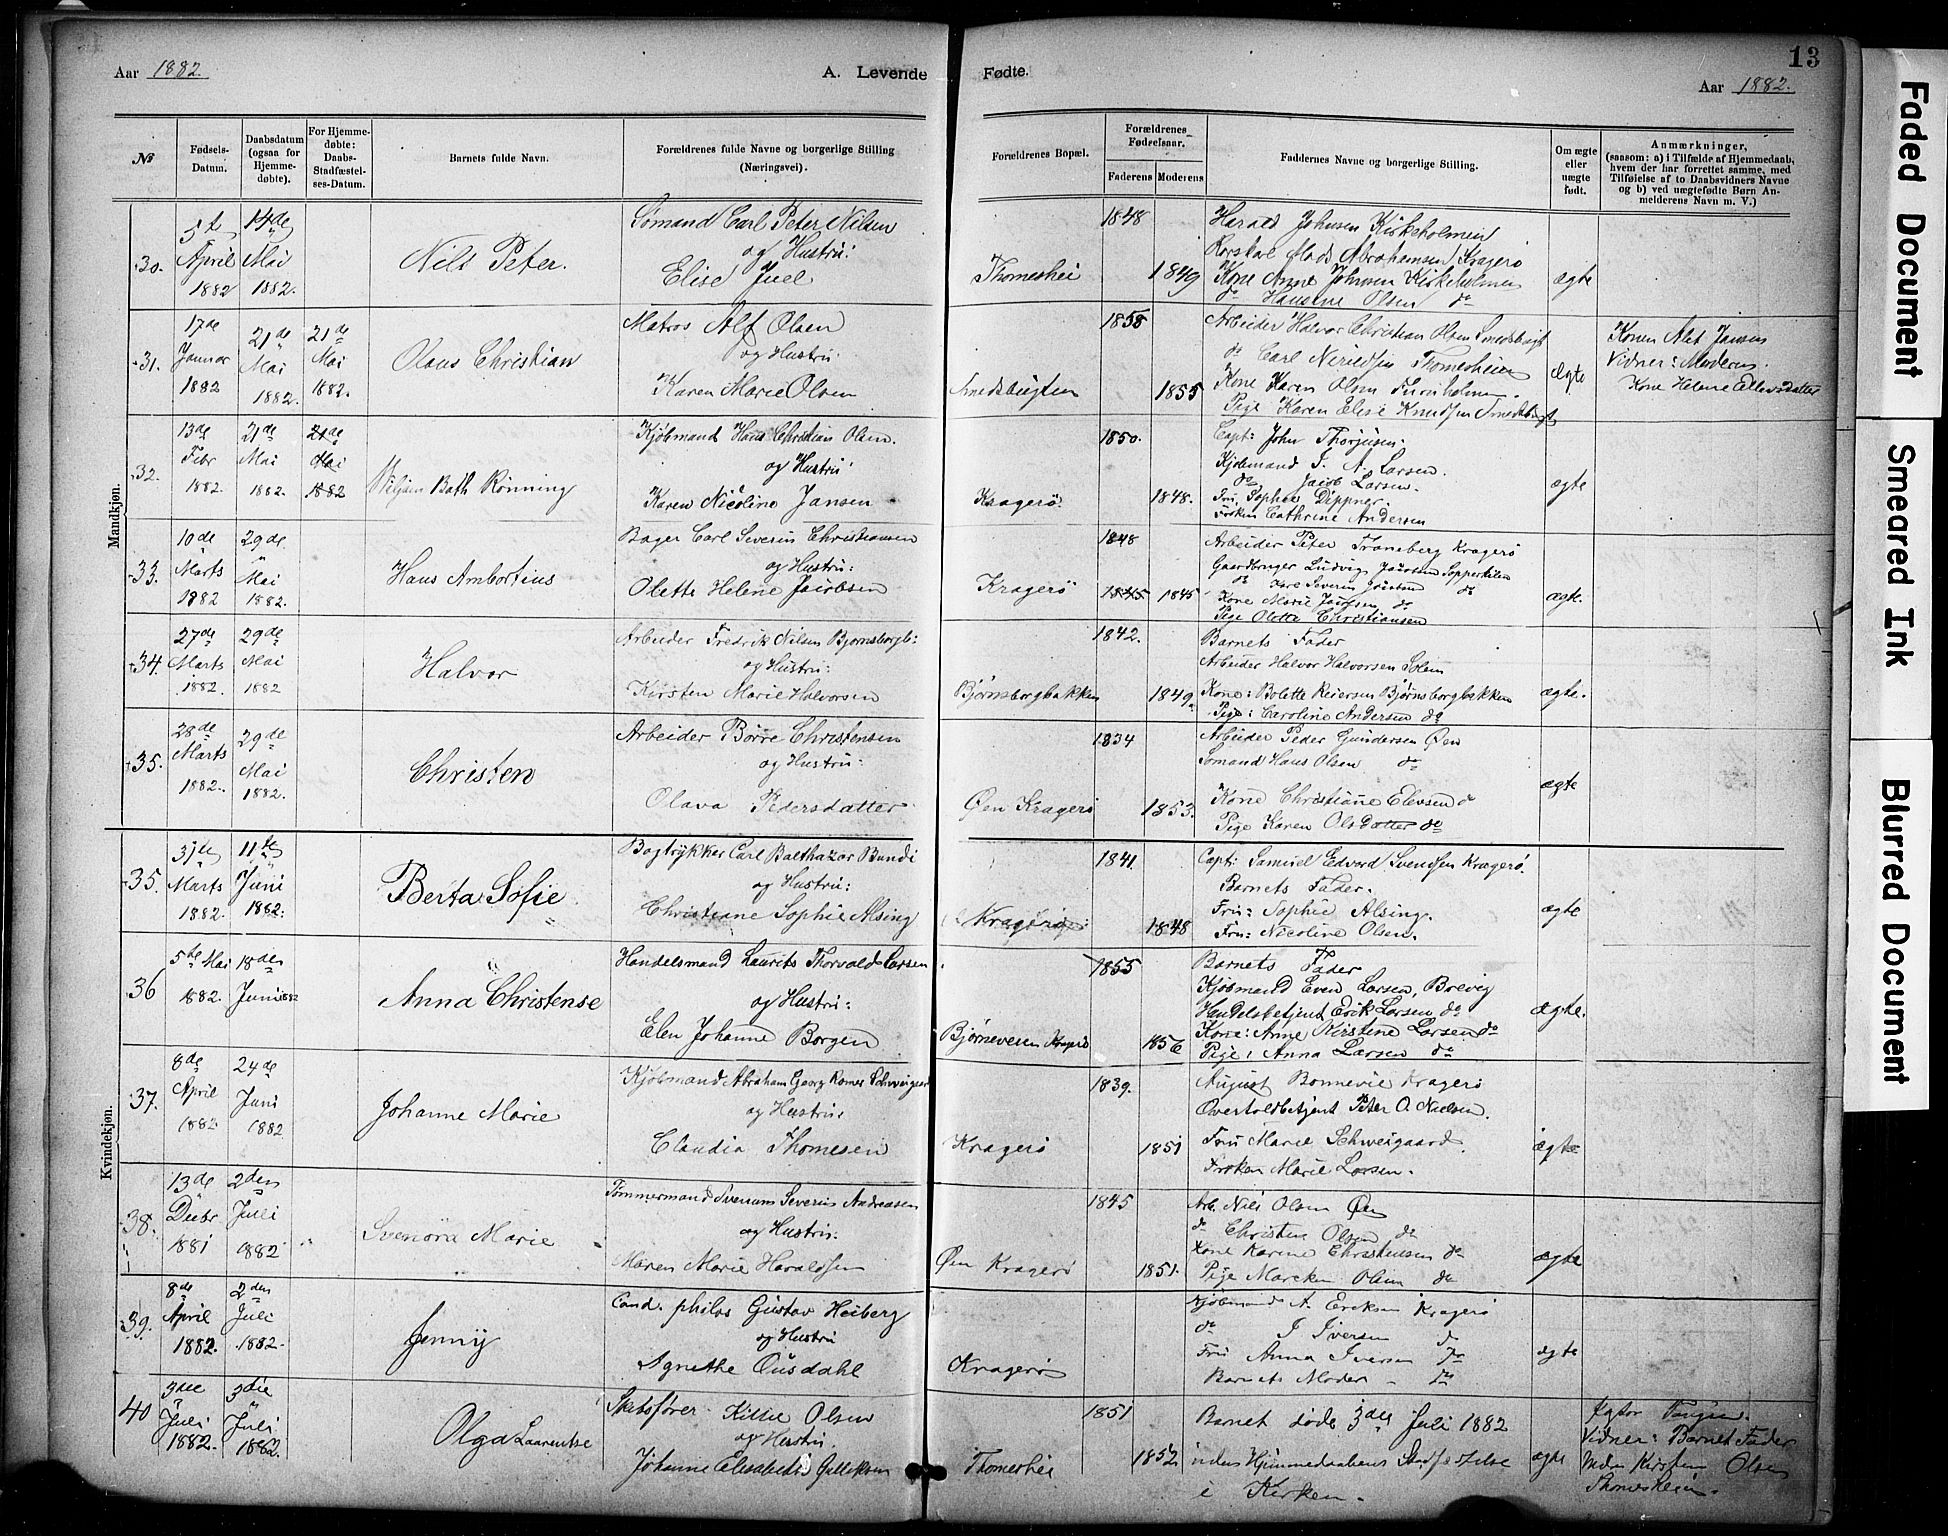 13
Aar 1882.
A. Levende Fødte.
Aar 1882.
№
Fødsels-Datum.
Daabsdatum (ogsaa for Hjemmedøbte).
For Hjemmedøbte: Daabs-Stadfæstelses-Datum.
Barnets fulde Navn.
Forældrenes fulde Navne og borgerlige Stilling (Næringsvei).
Forældrenes Bopæl.
Forældrenes Fødselsaar.
Faderens
Moderens
Faddernes Navne og borgerlige Stilling.
Om ægte eller uægte født.
Anmærkninger, (saasom: a) i Tilfælde af Hjemmedaab, hvem der har forrettet samme, med Tilføielse af to Daabsvidners Navne og b) ved uægtefødte Børn Anmelderens Navn m. V.)
Mandkjøn.
30.
April 1882
14de Mai 1882.
Nils Peter.
Sømand Carl Peter Nilsen
og Hustru:
Elise Juel
Thomeshei
1848
1849
Harald Johnsen Kirkeholmen
Mads Abrahamsen Kragerø
Kone Anne Johnsen Kirkeholmen
do Hansine Olsen do
ægte
31.
17de Januar 1882
21de Mai 1882.
21de Mai 1882.
Olaus Christian
Matros Alf Olsen
og Hustru:
Karen Marie Olsen
Smedsbugten
1858
1855
Arbeider Halvor Christian Olsen Smedsbugt
do Carl Thomesheien
Kone Karen Olsen
Pige Karen Elise Knudsen Smedsbugt
ægte
Konen Alet Jansen
Vidner: Moderen.
Kone Helene Ellevsdatter
32.
13de Febr 1882.
21de Mai 1882.
21de Mai 1882
Viljam Bath Rønning
Kjøbmand Hans Christian Olsen.
og Hustru:
Karen Nicoline Jansen
Kragerø.
1850.
1848.
Capt: John Thorjusen.
Kjøbmand J. A. Larsen.
do Jacob Larsen.
Fru Sophie Dippner.
Frøken Cathrine Andersen
ægte
33.
10de Marts 1882
29de Mai 1882.
Hans Ambortius
Bager Carl Severin Christiansen
og Hustru:
Olette Helene Jacobsen
Kragerø
1848
1845 1845
Arbeider Peter Traneberg Kragerø
Gaardbruger Ludvig Jacobsen
do Severin do
Kone Marie Jacobsen do
Pige Olette Christiansen
ægte.
34.
27de Marts 1882.
29de Mai 1882
Halvor
Arbeider Fredrik Nilsen Bjørnsborgb:
og Hustru:
Kirsten Marie Halvorsen
Bjørnsborgbakken
1842.
1849.
Barnets Fader
Arbeider Halvor Halvorsen Solem
Kone: Bolette Reiersen Bjørnsborgbakken
Pige: Caroline Andersen do
ægte.
35.
28de Marts 1882.
29de Mai 1882.
Christen
Arbeider Børre Christensen
og Hustru:
Olava Pedersdatter
Øen Kragerø
1834
1853.
Arbeider Peder Gundersen Øen
Sømand Hans Olsen do
Kone Christiane Elevsen do
Pige Karen Olsdatter do
ægte
Kvindekjøn.
35.
31te Marts 1882.
11te Juni 1882.
Berta Sofie
Bogtrykker Carl Balthazar Bundi
og Hustru:
Christiane Sophie Alsing
Kragerø
1841.
1848
Capt: Samuel Edvard Svendsen Kragerø.
Barnets Fader.
Fru: Sophie Alsing.
Fru: Nicoline Olsen.
ægte
36
5te Mai 1882.
18de Juni 1882
Anna Christense
Handelsmand Laurits Thorvald Larsen
og Hustru:
Elen Johanne Borgen
Bjørnevesen Kragerø
1855
1856
Barnets Fader
Kjøbmand Even Larsen, Brevig
Handelsbetjent Erik Larsen do
Kone: Anne Kirstine Larsen do
Pige: Anna Larsen do
ægte.
37.
8de April 1882
24de Juni 1882
Johanne Marie
Kjøbmand Abraham Georg Romer Schweigaard
og Hustru:
Claudia Thomesen
Kragerø
1839.
1851
August Bonnevie Kragerø
Overtoldbetjent Peter O. Nielsen.
Fru Marie Schweigaard
Frøken Marie Larsen.
ægte
38.
13de Decbr 1881
2den Juli 1882
Svenora Marie
Tømmermand Severin Andreasen
og Hustru:
Maren Marie Haraldsen
Øen Kragerø
1845
1851.
Arb. Nils Olsen Øen
do Christen Olsen do
Kone Karine Christensen do
Pige Olsen do
ægte
39.
8de April 1882.
2den Juli 1882.
Jenny
Cand. philos Gustav Heiberg
og Hustru
Agnethe Ousdahl
Kragerø
Kjøbmand A. Ericksen Kragerø
do J Iversen do
Fru Anna Iversen do
Barnets Moder - do
ægte
40
3die Juli 1882.
3die Juli 1882.
Olga Laurentse
Skibsfører Olsen
og Hustru.
Johanne Elisabeth Gulliksen
Thomeshei
1851
1852
Barnet døde 3de Juli 1882
uden Hjemmedaabens Stadfæstelse
i Kirken.
ægte
Vidner: Barnets Fader
Kirsten Olsen
Thomesheien.
Faded Document
Smeared Ink
Blurred Document